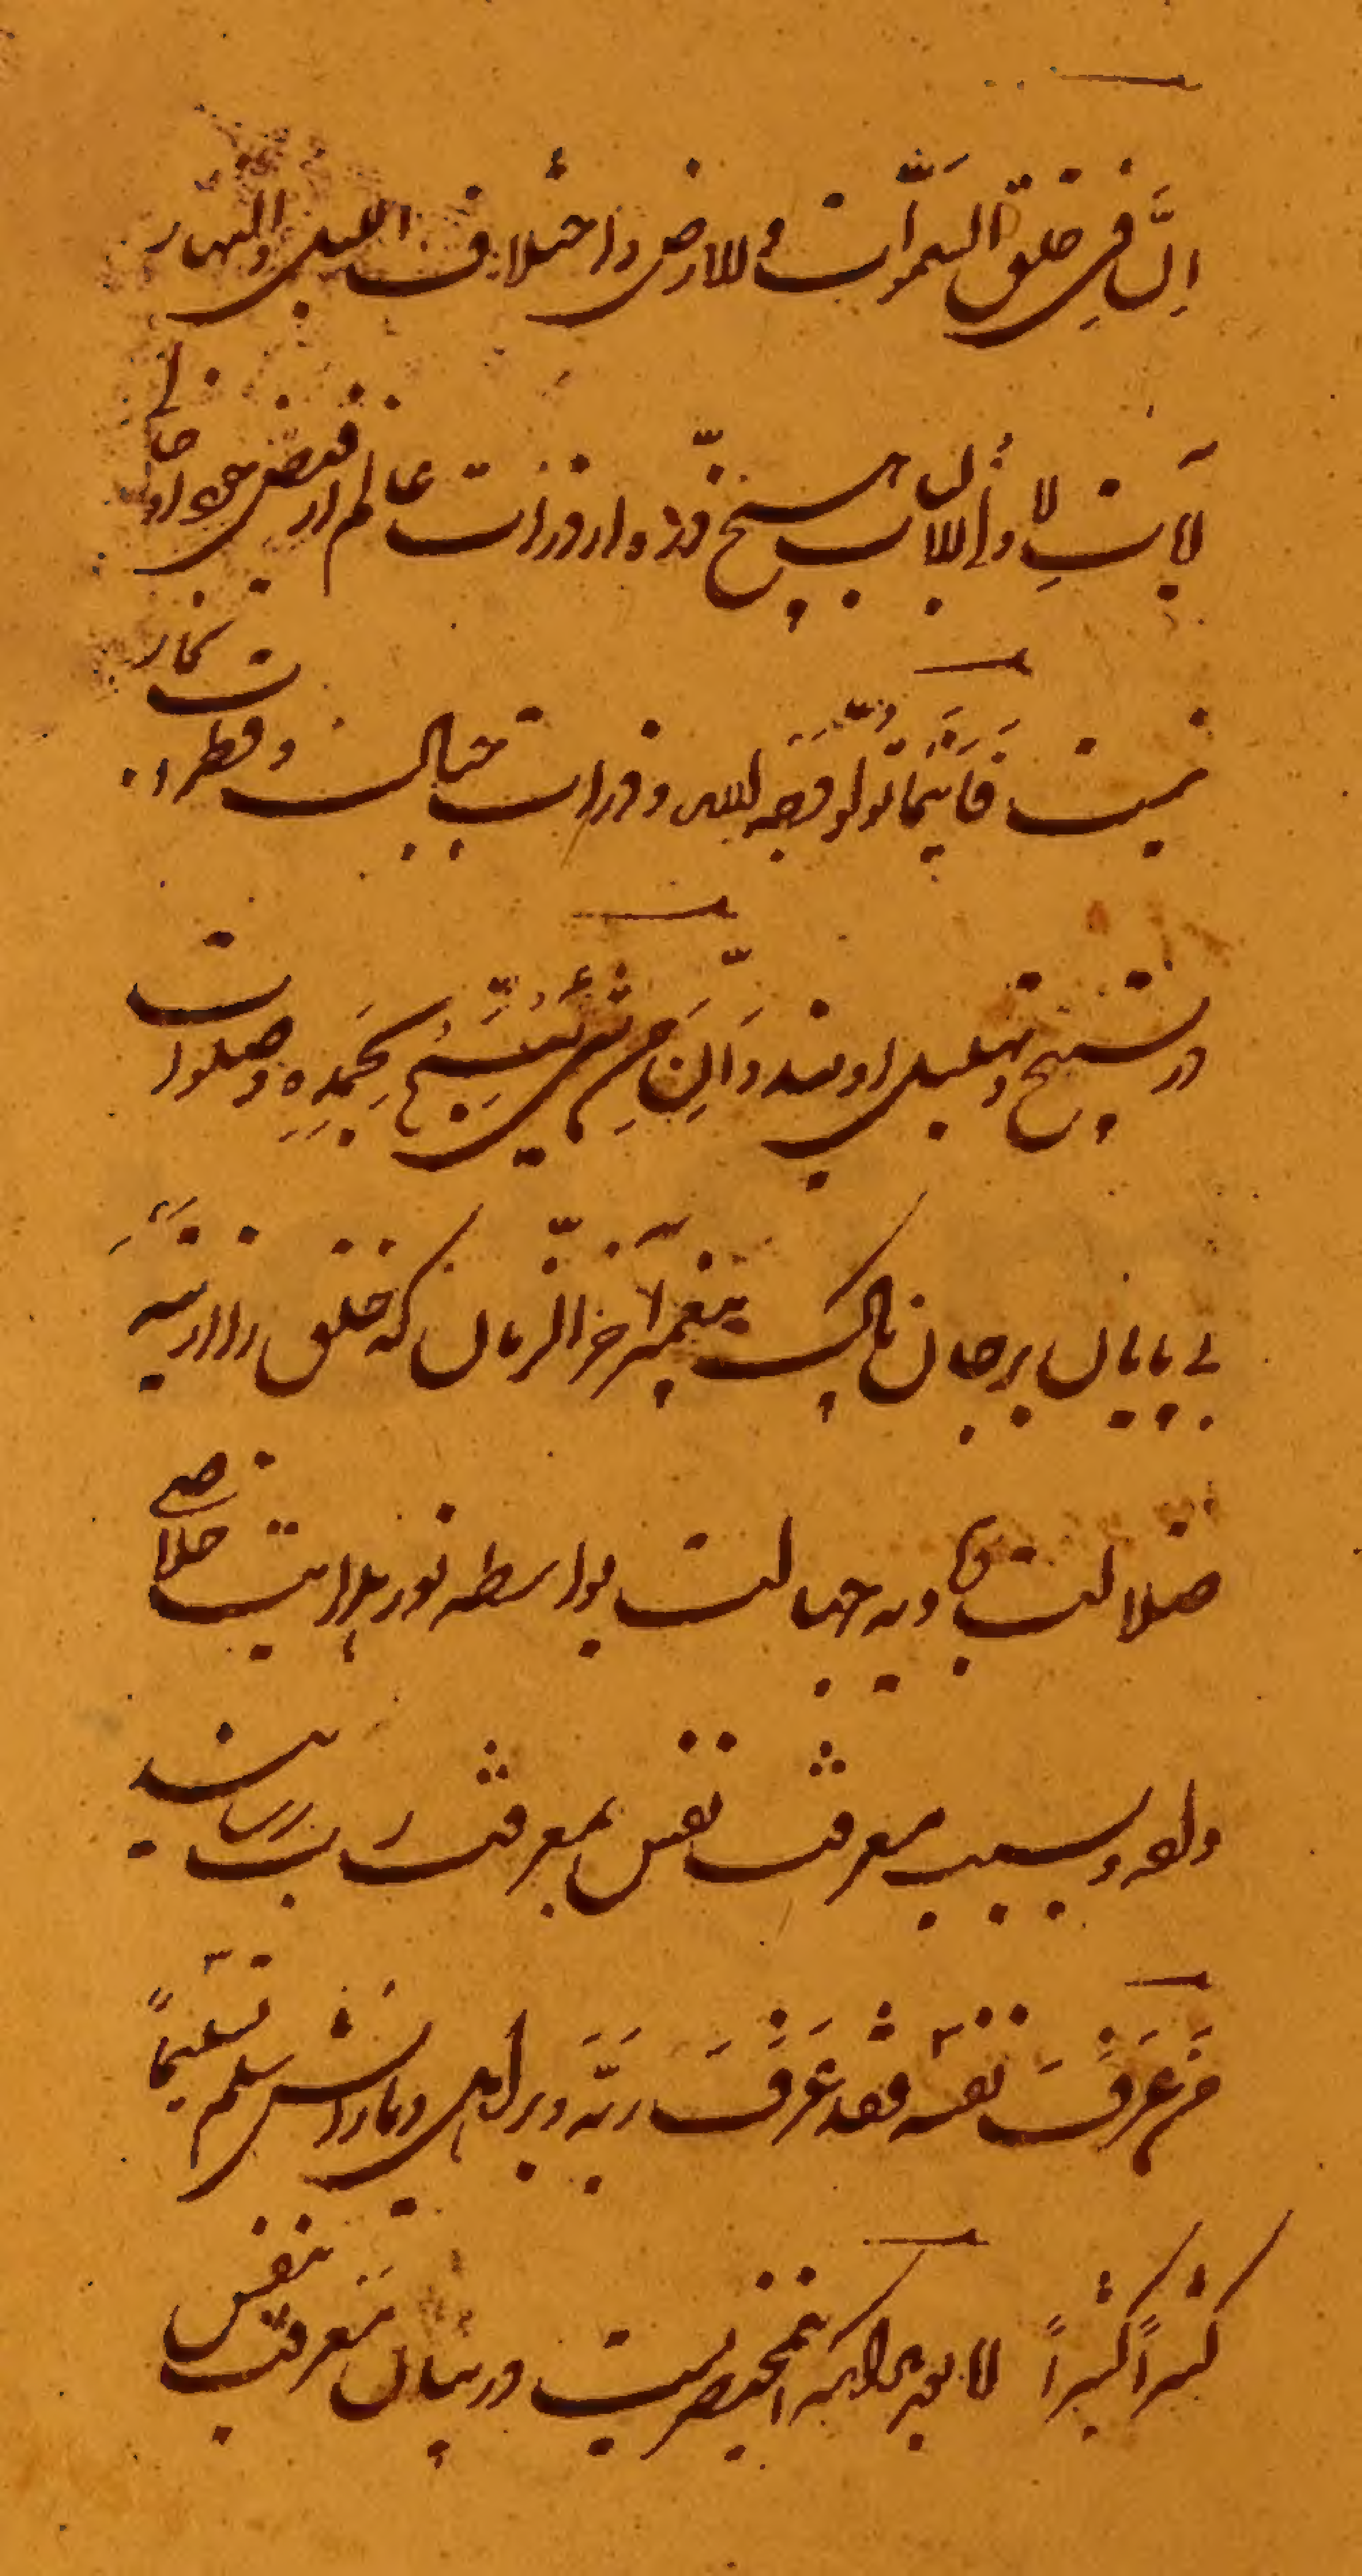 اِنَّ فِی خلق السمَّوات والارض واختلاف اللیل والنهار
لآیات لِاُولی الالباب هیچ ذرّه از ذرّات عالم از فیض جود او خالی
نیست فَاَیْنَمَا تولّو فَثَمَّ وَجه الله و ذرات جبال و قطرات بحار
در تسبیح و تهلیل اویند وَاِن مِن شیءٍ یُسَبِّحُ بِحَمدِهِ و صلوات
بی پایان بر جان پاک پیغمبر آخر الزّمان که خلق را از تیه
ضلالت و بادیه جهالت بواسطه نور هدایت خلاصی
داده و بسبب معرفت نفس بمعرفت رب رسانید
مَن عَرَفَ نفسه فقد عَرَفَ ربّه و بر اهل بیت و یارانش سلم تسلیماً
کثیراً کثیراً اما بعد بدانکه این مختصریست در بیان معرفت نفس